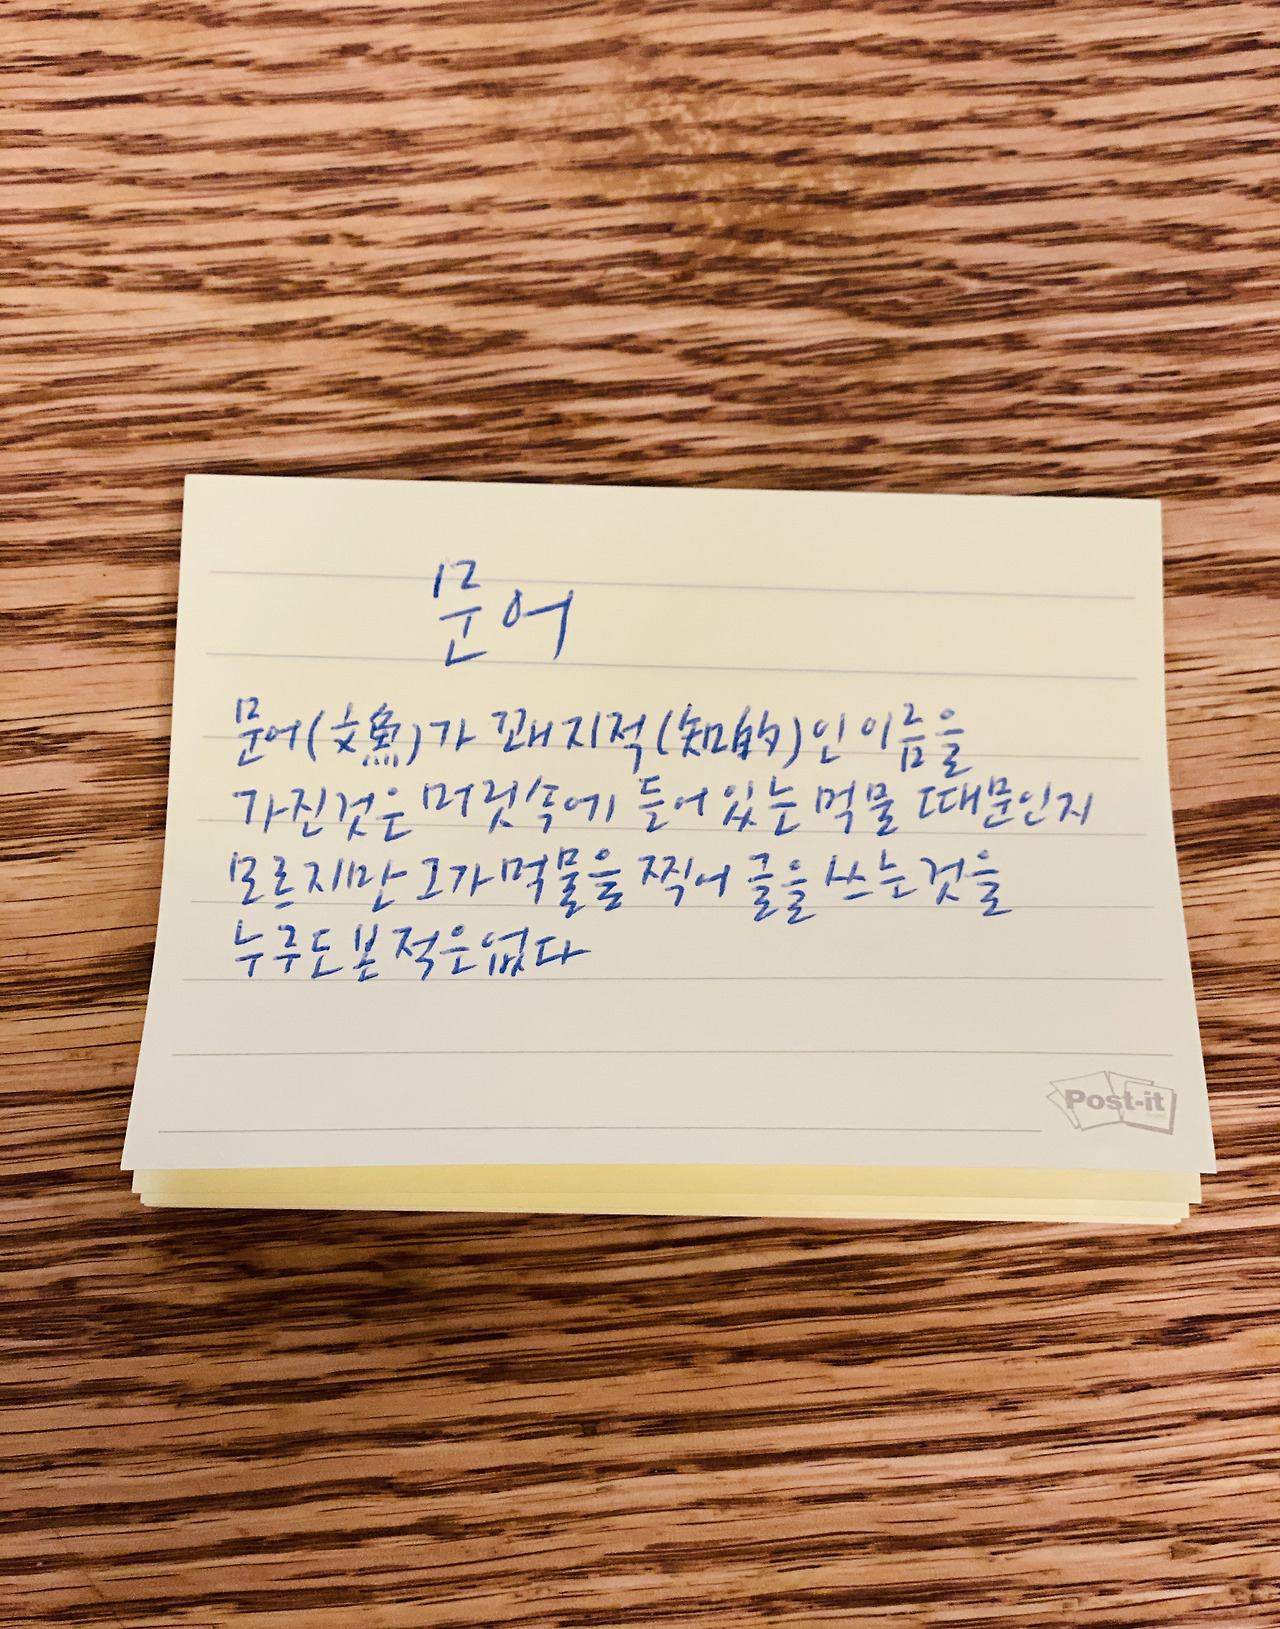 문어
문어(文魚)가 꽤 지적(知的)인 이름을
가진것은 머릿속에 들어있는 먹물 때문인지
모르지만 그가 먹물을 찍어 글을 쓰는것을
누구도 본적은없다
Post-it